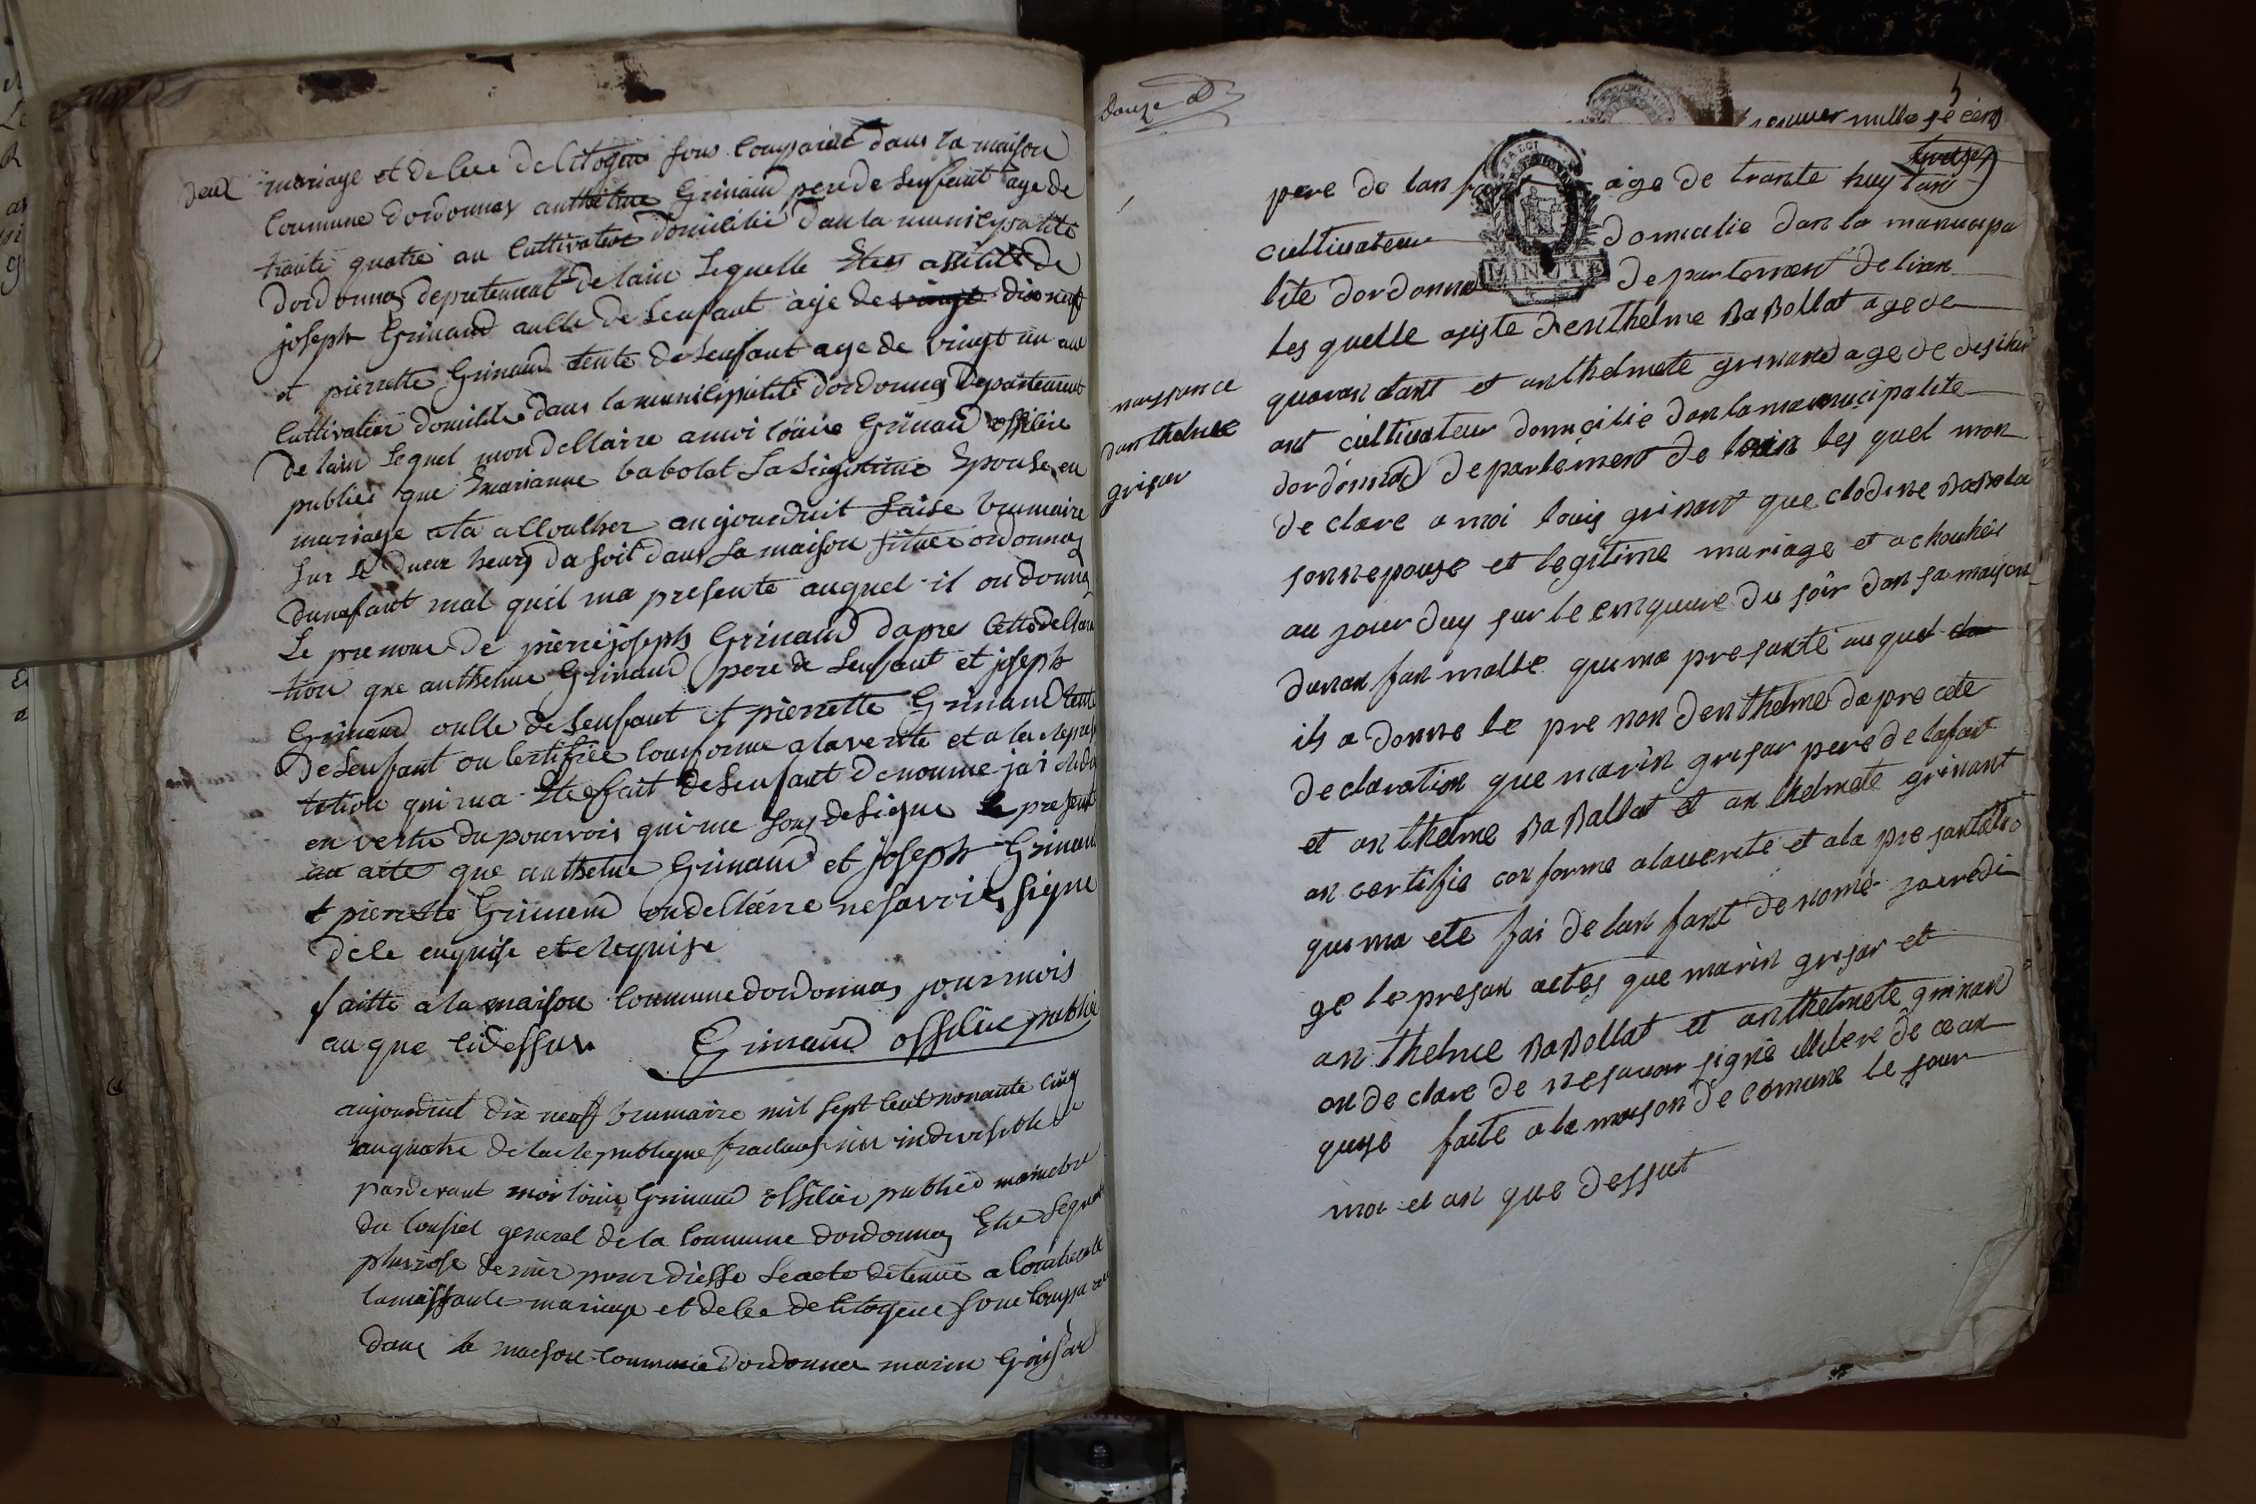 deux mariage et de lere de Citogin sous Comparut dans la maison
Commune dordonnas anthelme Grinand pere de Lenfant age de
trante quatre an Cultivateur domicilié dans la municipalité
dordonnas depretement de lain Lequelle Etes assité de
joseph Grinand onlle de Lenfant age de vingt dix neuf
et pierrette Grinand tente de Lenfant age de vingt un an
Cultivateur domicilié dans la municipalité dordonnas departement
de lain Lequel mon dellairre a moi loüis Grinand offilier
publice que marianne babolat La Ligitime Epouse en
mariage a la allouther aujourduit saise brumaire
sur Le dueux heurs da soit dans sa maison situé ordonnas
dunefant mal quil ma presente auquel il on donnes
Le prenom de pierre joseph Grinand dapres Cette dellara
tion que anthelme Grinand pere de Lenfant et joseph
Grinand onlle de Lenfant et pierrette Grinand tente
de Lenfant on Certifiee Conforme a la verite et a la represen
tation qui ma Ete fait de Lenfant denomme jai redi
en vertu du pourvoir qui me sous designe Le present
an acte que anthelme Grinand et joseph Grinand
et pierrette Grinand on dellairre ne savoir signe
de le enquise et requise
faitte a la maison Commune dordonnas jour mois
an que Cidessus Grinand offiliee publice
aujourduit dix neuf brumaire mil sept Cent nonante Cinq
an quatre de la republique francaise une indivisible
pardevant moi loüis Grinand offilier publice mametbre
du Consiel general de la Commune dordonnas Elu Le
pluviose dernier pour diesse Le acte detenue a
la naissance mariage et delee de Citogene sont
dans la maison Commune dordonnas marin Grisard
douze
5
mille se cens
pere de lan fan age de trante huy tan
cultivateur domicilie dan la manucipa
lite dordonna departement de lian
MINUTE
les quelle asiste denthelme BaBollat age de
quaran dant et anthelmete grinand age de desihui
ant cultivateur domicilie dan la manucipalite
dordonnas departement de lain les quel mon
declare a moi louis grinant que clodine BaBola
sonnepouse et legitime mariage et achouhes
au jourduy sur le cinqueure du soir dan sa maison
dunan fan malle qui ma presante auquel da
ils a donne le pre non denthelme dapre cete
declaration que marin grisar pere de lafant
et anthelme BaBallat et anthelmete grinant
an certifie conforme alaverite et ala presantatio
qui ma ete fai de lan fant de nomé jairedi
ge le presan actes que marin grisar et
anthelme BaBollat et anthelmete grinand
on declare de ne savoir signé de ce an
quise faite a la maison de comune le jour
moi et an que dessut
nayssance
danthelme
grisar